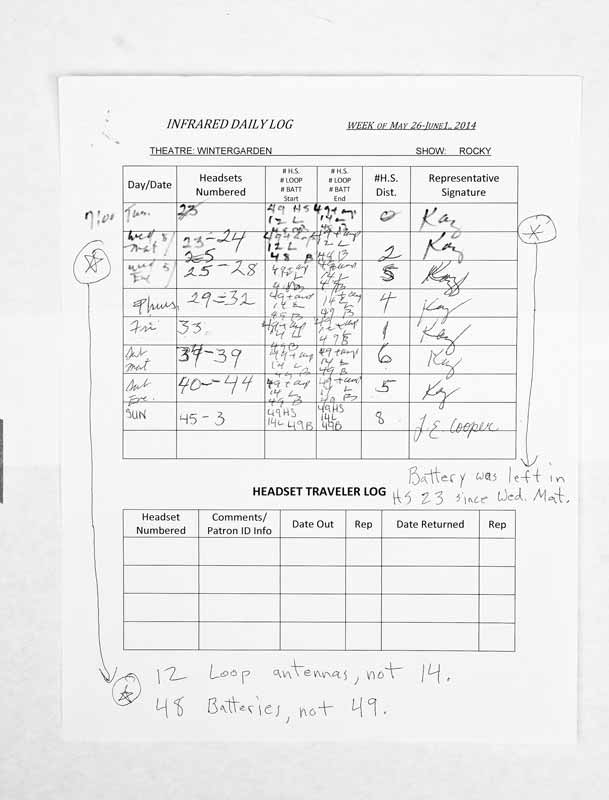 INFRARED DAILY LOG WEEK OF MAY 26-JUNE1, 2014
THEATRE: WINTERGARDEN SHOW: ROCKY
Day/Date Headsets Numbered # H.S. # LOOP # BATT Start # H.S. # LOOP # BATT End #H.S. Dist. Representative Signature
7:00 Tues. 23 49 HS 12 L 0 Kay
Wed Mat 23-24 12 L 48 B 12 L 48 B 2 Kay
Wed Eve 25-28 14 L 5 Kay
Thurs 29-32 49 B 49 B 4 Kay
Fri 33 49 B 1 Kay
Sat Mat 34-39 14 L 49 B 14 L 49 B 6 Kay
Sat Eve. 40-44 14 L 49 B 14 L 49 B 5 Kay
SUN 45-3 49HS 14L 49B 49HS 14L 49B 8 J.E. Cooper
Battery was left in
HS 23 since Wed. Mat.
HEADSET TRAVELER LOG
Headset Numbered Comments/ Patron ID Info Date Out Rep Date Returned Rep
12 Loop antennas, not 14.
48 Batteries, not 49.